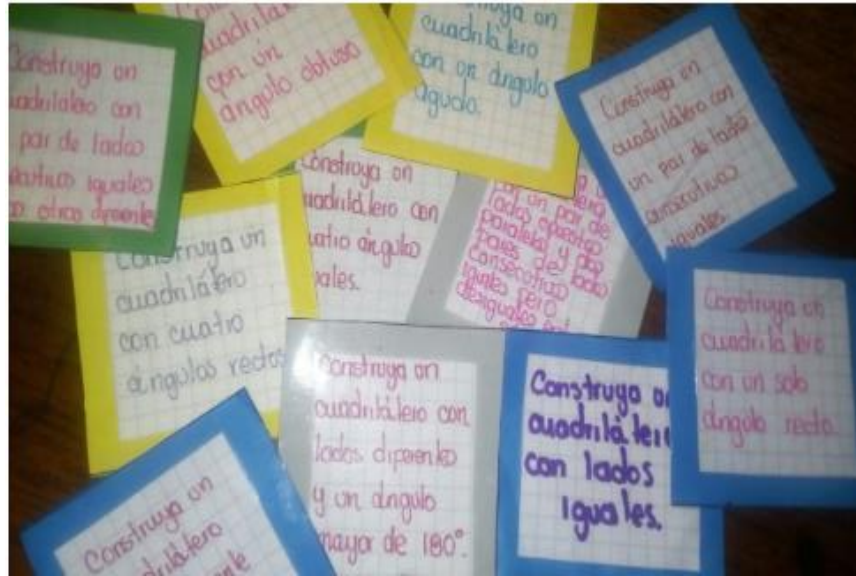 Construya un
cuadrilatero con
par de lados
iguales
otros diferente
cuadrila
con un
angulo obtuso
un
cuadrilátero
con un ángulo
agudo.
Construya un
cuadrilátero con
un par de lados
consecutivos
iguales.
Construya un
cuadrilátero con
cuatro ángulos
iguales.
por un par de
lados opuestos
paralelos y dos
pares de lados
consecutivos
iguales pero
desiguales
Construya un
cuadrilátero
con cuatro
ángulos rectos
Construya un
cuadrilátero
con un solo
ángulo recto.
Construya un
cuadrilátero con
lados diferentes
y un ángulo
mayor de 180°.
Construya un
cuadrilátero
con lados
iguales.
Construya un